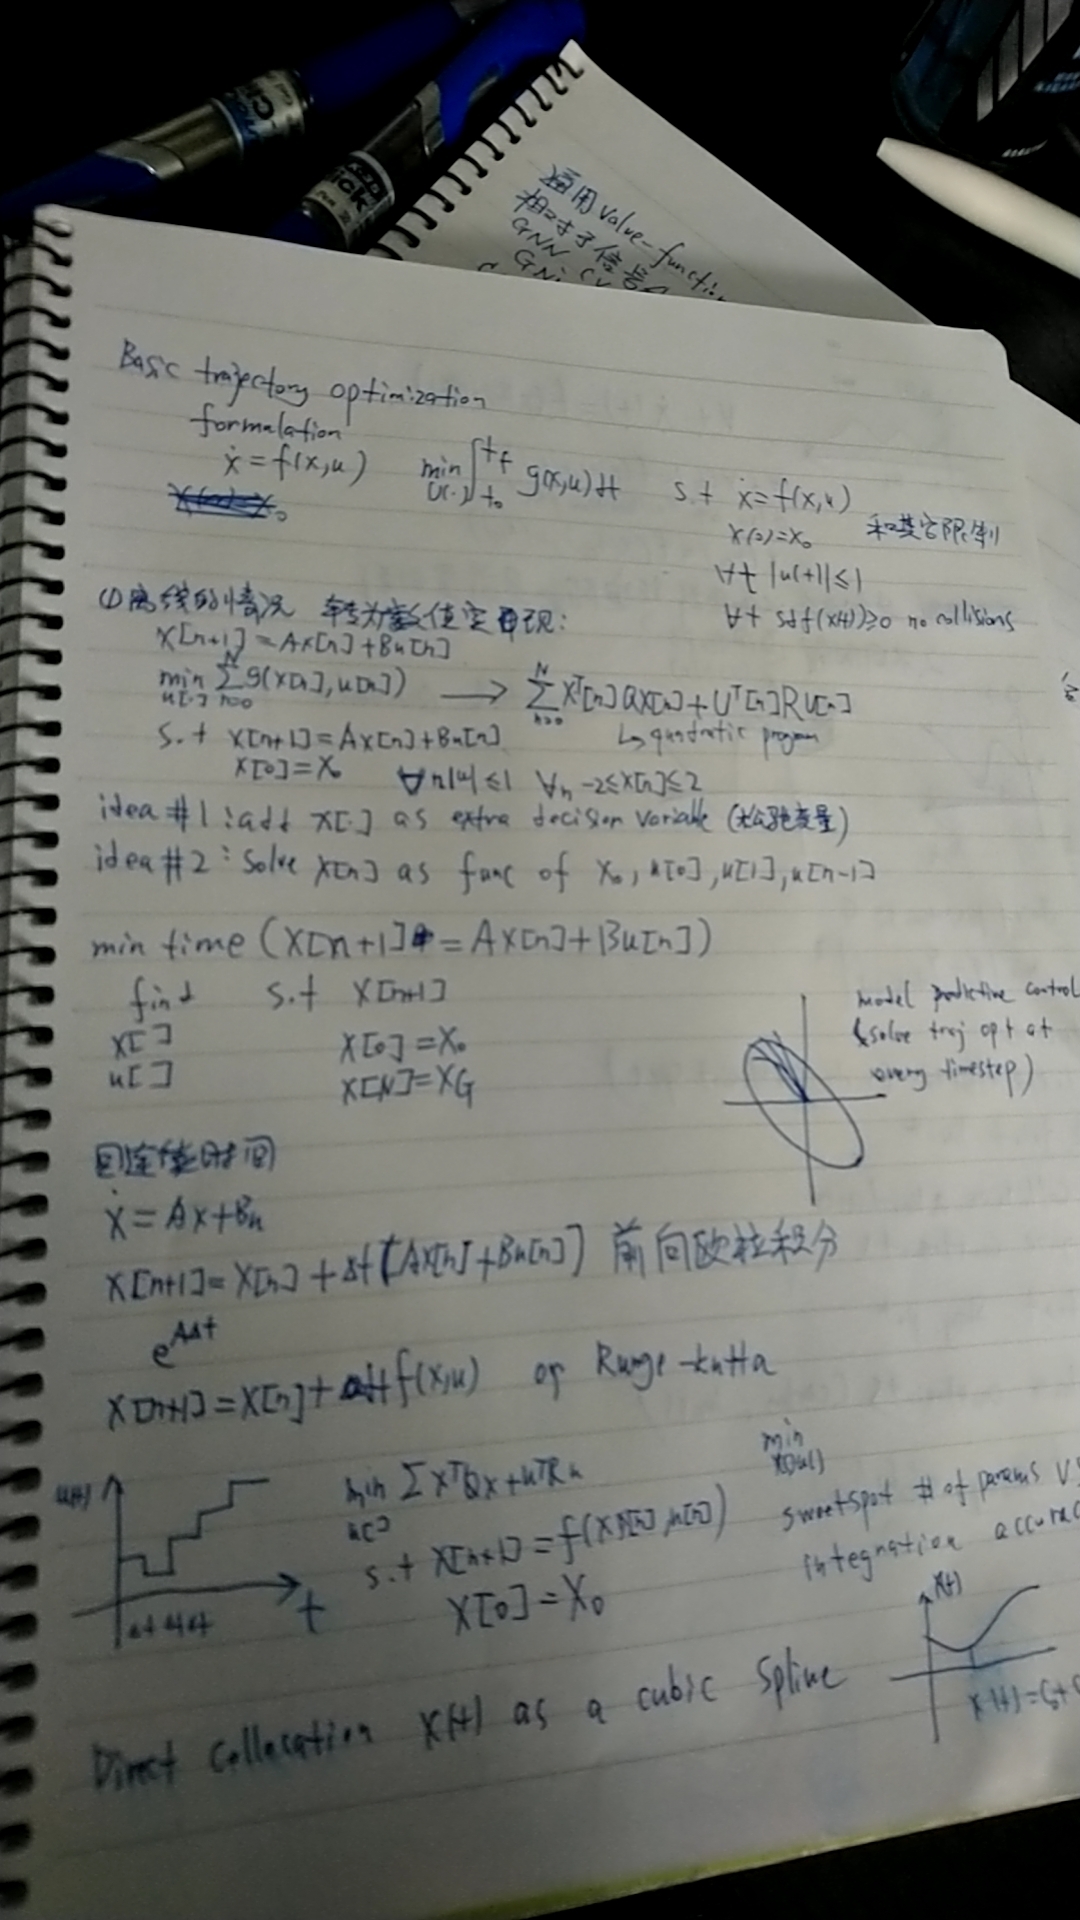 通用 value-function
GNN
Basic trajectory optimization
formulation
ẋ = f(x,u) min ∫ t₀ tf g(x,u)dt s.t ẋ = f(x,u)
U(·)
x(0)=x₀ 和其它限制
∀t |u(t)|≤1
∀t sdf(x(t))≥0 no collisions
①离线的情况 转为数值实现:
X[n+1]=AX[n]+Bu[n]
min Σ g(x[n],u[n]) → Σ Xᵀ[n]QX[n]+Uᵀ[n]RU[n]
u[·] n=0 N n=0 N
s.t X[n+1]=AX[n]+Bu[n] ↳quadratic program
X[0]=X₀ ∀n|u|≤1 ∀n -2≤X[n]≤2
idea #1:add X[·] as extra decision variable (松弛变量)
idea #2:Solve X[n] as func of X₀,u[0],u[1],u[n-1]
min time (X[n+1]=AX[n]+Bu[n])
find s.t X[n+1]
X[] X[0]=X₀
u[] X[N]=XG
model predictive control
(solve traj opt at
every timestep)
回连续时间
Ẋ=AX+Bu
X[n+1]=X[n]+Δt[AX[n]+Bu[n]] 前向欧拉积分
e^AΔt
X[n+1]=X[n]+Δt f(x,u) or Runge-kutta
u(t)
t
min ΣXᵀQX+uᵀRu
u[]
s.t X[n+1]=f(X[n],u[n])
X[0]=X₀
min
sweetspot # of params
integration
x(t)
Direct collocation X(t) as a cubic spline